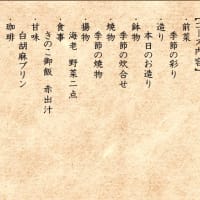 【コース内容】
・前菜
季節の彩り
・造り
本日のお造り
・鉢物
季節の炊合せ
・焼物
季節の焼物
・揚物
海老 野菜二点
・食事
きのこ御飯 赤出汁
・甘味
白胡麻プリン
・珈琲